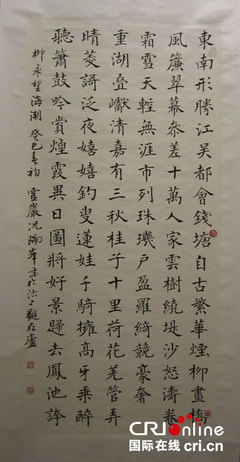 東南形勝江吳都會錢塘自古繁華煙柳畫橋
風簾翠幕參差十萬人家雲樹繞堤沙怒濤卷
霜雪天塹無涯市列珠璣戶盈羅綺競豪奢
重湖叠巘清嘉有三秋桂子十里荷花羌管弄
晴菱謌泛夜嬉嬉釣叟蓮娃千騎擁高牙乘醉
聽簫鼓吟賞煙霞異日圖將好景歸去鳳池誇
柳永望海潮 癸巳春初 靈巖
CRIonline
国际在线 cri.cn